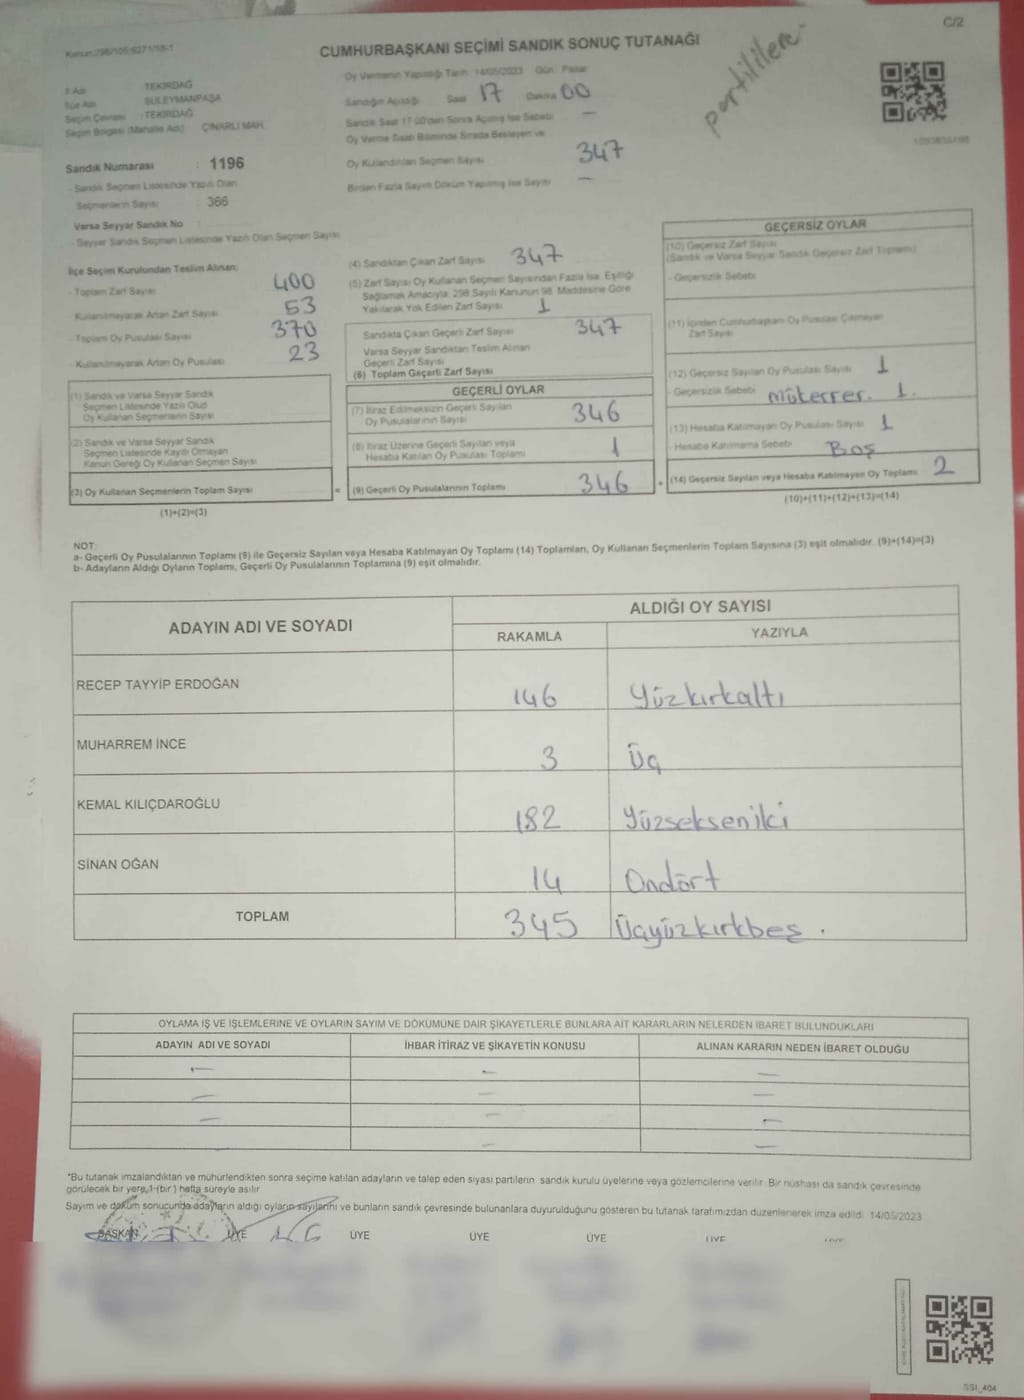 C/2
Kanun:298/105,6271/18-1
CUMHURBAŞKANI SEÇİMİ SANDIK SONUÇ TUTANAĞI
partililere
İl Adı TEKİRDAĞ
İlçe Adı SÜLEYMANPAŞA
Seçim Çevresi : TEKİRDAĞ
Seçim Bölgesi (Mahalle Adı) ÇINARLI MAH.
Sandık Numarası : 1196
- Sandık Seçmen Listesinde Yazılı Olan
Seçmenlerin Sayısı : 366
Varsa Seyyar Sandık No
- Seyyar Sandık Seçmen Listesinde Yazılı Olan Seçmen Sayısı
Oy Vermenin Yapıldığı Tarih: 14/05/2023 Gün: Pazar
Sandığın Açıldığı Saat 17 Dakika 00
Sandık Saat 17.00'den Sonra Açılmış İse Sebebi —
Oy Verme Saati Bitiminde Sırada Bekleyen ve
Oy Kullandırılan Seçmen Sayısı 347
Birden Fazla Sayım Döküm Yapılmış İse Sayısı —
İlçe Seçim Kurulundan Teslim Alınan;
- Toplam Zarf Sayısı 400
- Kullanılmayarak Artan Zarf Sayısı 53
- Toplam Oy Pusulası Sayısı 370
- Kullanılmayarak Artan Oy Pusulası 23
(1) Sandık ve Varsa Seyyar Sandık
Seçmen Listesinde Yazılı Olup
Oy Kullanan Seçmenlerin Sayısı
(2) Sandık ve Varsa Seyyar Sandık
Seçmen Listesinde Kayıtlı Olmayan
Kanun Gereği Oy Kullanan Seçmen Sayısı
(3) Oy Kullanan Seçmenlerin Toplam Sayısı
(1)+(2)=(3)
(4) Sandıktan Çıkan Zarf Sayısı 347
(5) Zarf Sayısı Oy Kullanan Seçmen Sayısından Fazla İse, Eşitliği
Sağlamak Amacıyla, 298 Sayılı Kanunun 98. Maddesine Göre
Yakılarak Yok Edilen Zarf Sayısı 1
Sandıkta Çıkan Geçerli Zarf Sayısı 347
Varsa Seyyar Sandıktan Teslim Alınan
Geçerli Zarf Sayısı
(6) Toplam Geçerli Zarf Sayısı
GEÇERLİ OYLAR
(7) İtiraz Edilmeksizin Geçerli Sayılan
Oy Pusulalarının Sayısı 346
(8) İtiraz Üzerine Geçerli Sayılan veya
Hesaba Katılan Oy Pusulası Toplamı 1
= (9) Geçerli Oy Pusulalarının Toplamı 346
GEÇERSİZ OYLAR
(10) Geçersiz Zarf Sayısı
(Sandık ve Varsa Seyyar Sandık Geçersiz Zarf Toplamı)
- Geçersizlik Sebebi
(11) İçinden Cumhurbaşkanı Oy Pusulası Çıkmayan
Zarf Sayısı
(12) Geçersiz Sayılan Oy Pusulası Sayısı 1
- Geçersizlik Sebebi mükerrer. 1.
(13) Hesaba Katılmayan Oy Pusulası Sayısı 1
- Hesaba Katılmama Sebebi Boş
+ (14) Geçersiz Sayılan veya Hesaba Katılmayan Oy Toplamı 2
(10)+(11)+(12)+(13)=(14)
NOT:
a- Geçerli Oy Pusulalarının Toplamı (9) ile Geçersiz Sayılan veya Hesaba Katılmayan Oy Toplamı (14) Toplamları, Oy Kullanan Seçmenlerin Toplam Sayısına (3) eşit olmalıdır. (9)+(14)=(3)
b- Adayların Aldığı Oyların Toplamı, Geçerli Oy Pusulalarının Toplamına (9) eşit olmalıdır.
ADAYIN ADI VE SOYADI
ALDIĞI OY SAYISI
RAKAMLA YAZIYLA
RECEP TAYYİP ERDOĞAN 146 Yüzkırkaltı
MUHARREM İNCE 3 Üç
KEMAL KILIÇDAROĞLU 182 Yüzseksenilci
SİNAN OĞAN 14 Ondört
TOPLAM 345 Üçyüzkırkbeş.
OYLAMA İŞ VE İŞLEMLERİNE VE OYLARIN SAYIM VE DÖKÜMÜNE DAİR ŞİKAYETLERLE BUNLARA AİT KARARLARIN NELERDEN İBARET BULUNDUKLARI
ADAYIN ADI VE SOYADI İHBAR İTİRAZ VE ŞİKAYETİN KONUSU ALINAN KARARIN NEDEN İBARET OLDUĞU
— — —
— — —
— — —
— —
*Bu tutanak imzalandıktan ve mühürlendikten sonra seçime katılan adayların ve talep eden siyasi partilerin sandık kurulu üyelerine veya gözlemcilerine verilir. Bir nüshası da sandık çevresinde
görülecek bir yere 1 (bir) hafta süreyle asılır.
Sayım ve döküm sonucunda adayların aldığı oyların sayılarını ve bunların sandık çevresinde bulunanlara duyurulduğunu gösteren bu tutanak tarafımızdan düzenlenerek imza edildi. 14/05/2023
BAŞKAN ÜYE ÜYE ÜYE ÜYE ÜYE ÜYE
SSI_404